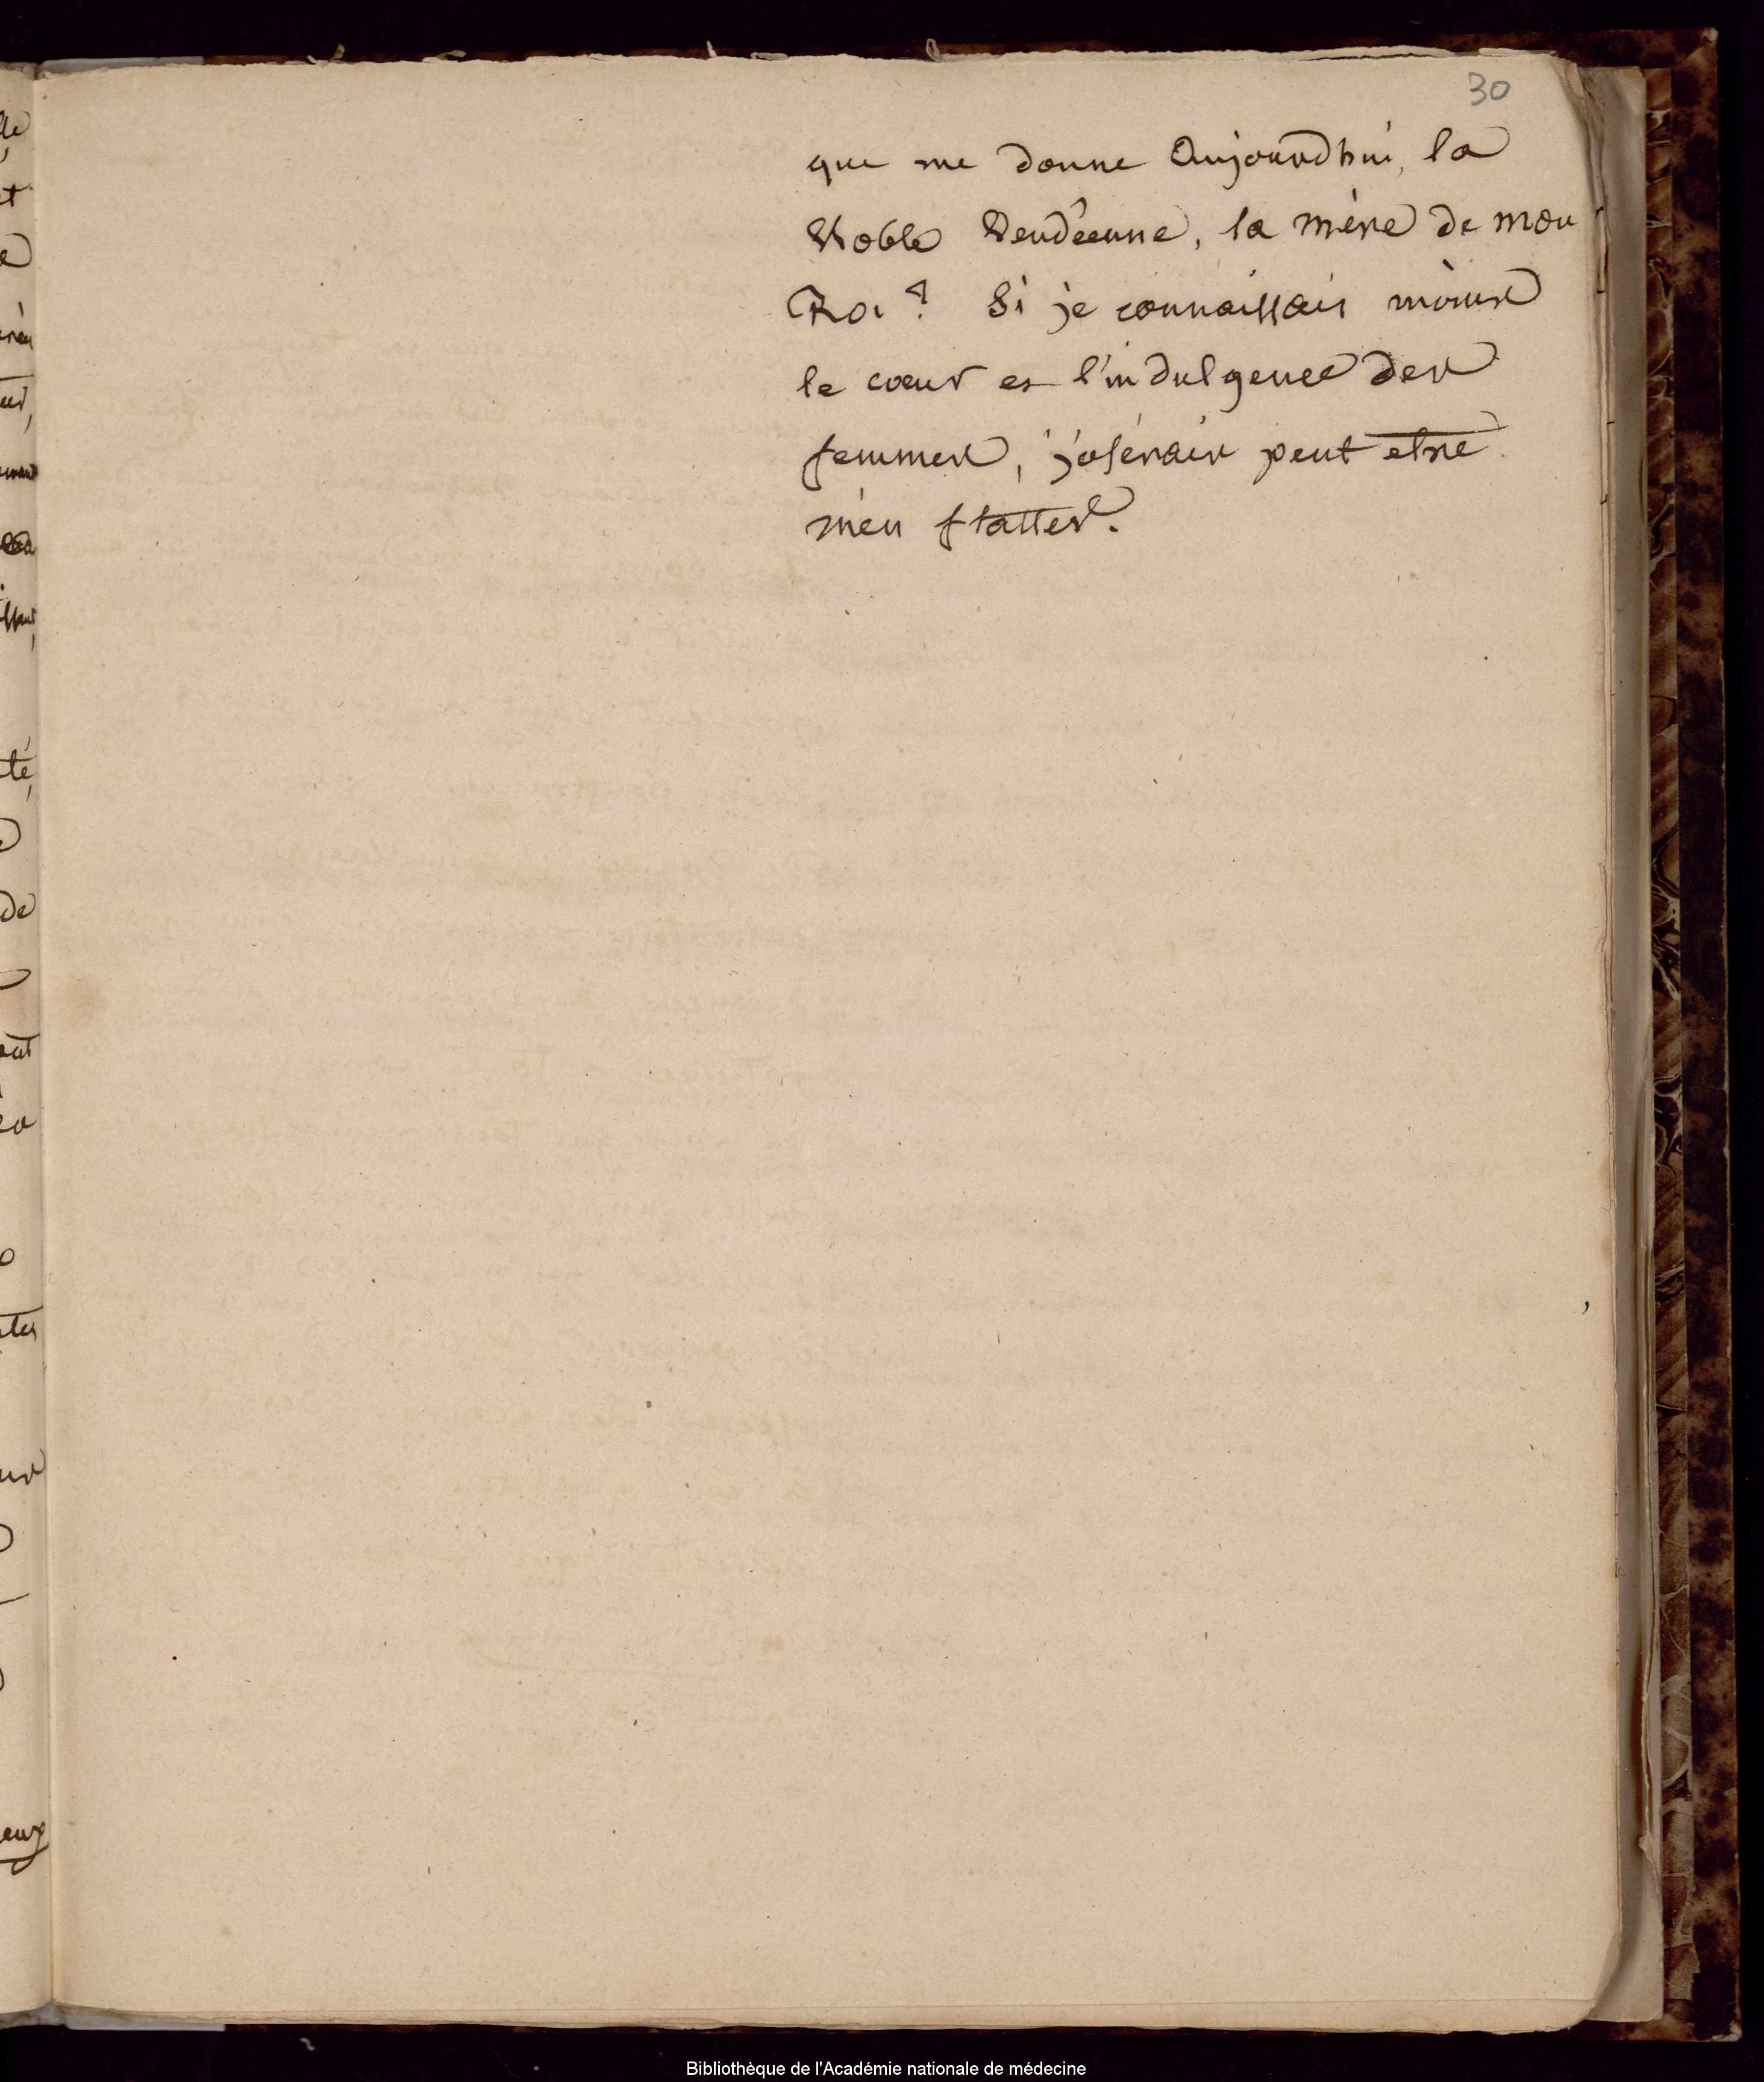 30
que me donne Aujourdhui, la
Noble Vendéenne, la mère de mon
Roi? Si je connaissais moins
le cœur et l'indulgence des
femmes, j'oserais peut etre
m'en flatter.
Bibliothèque de l'Académie nationale de médecine